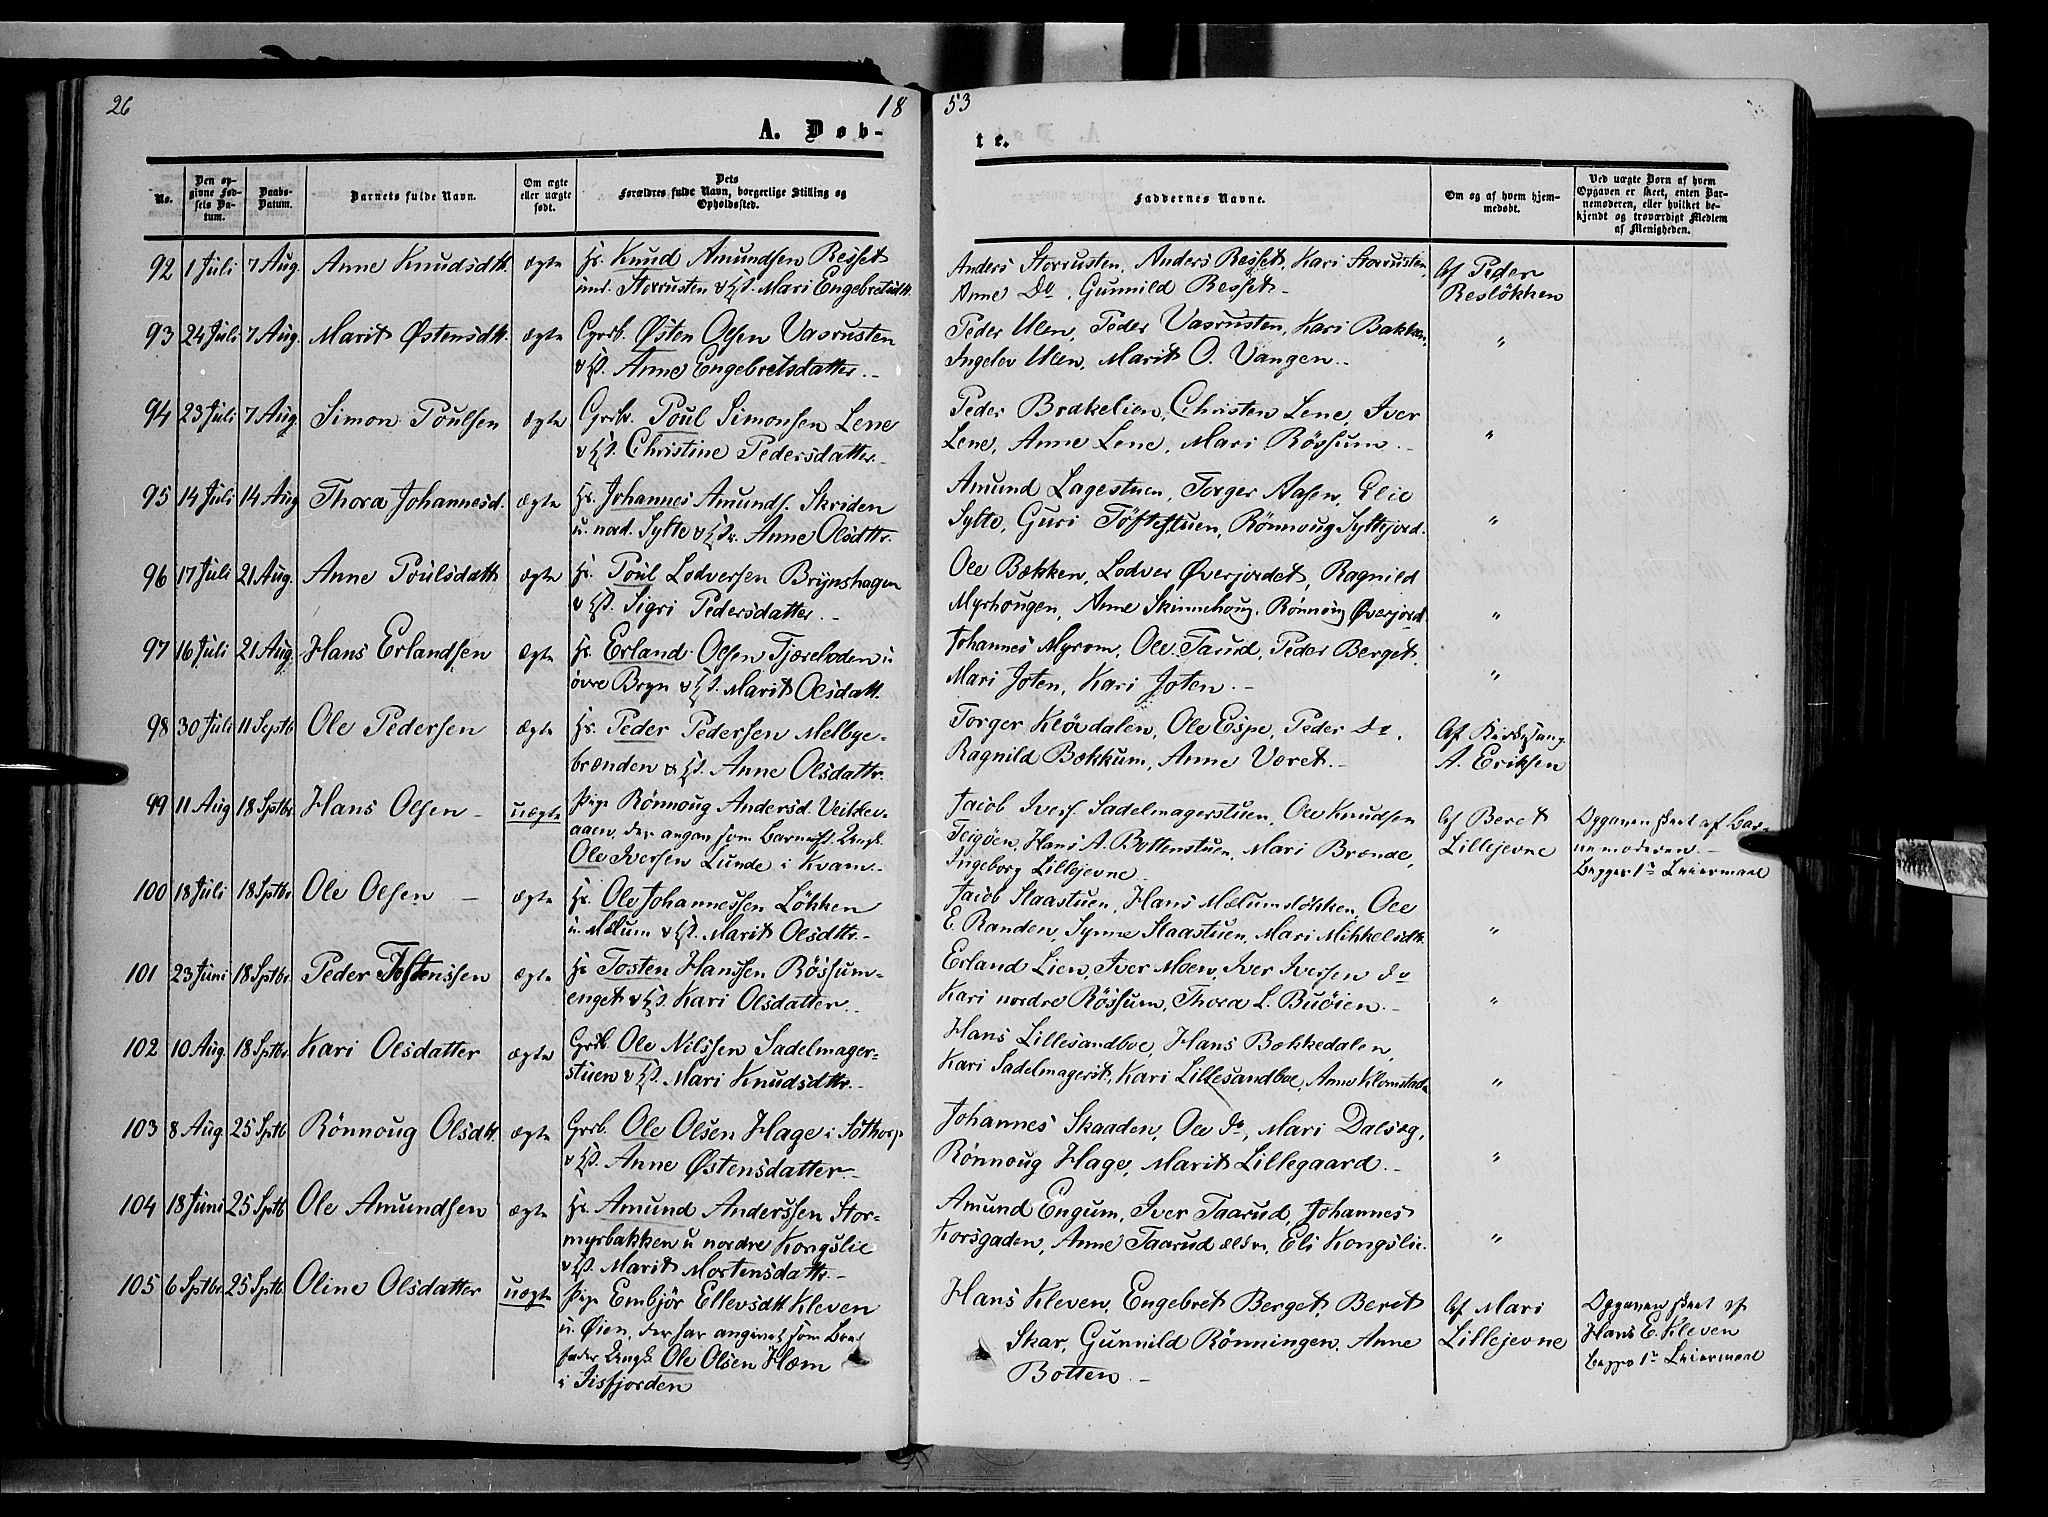 26
18
53
A. Døb-
te.
No.
Den op-
givne Fød-
sels Da-
tum.
Daabs-
Datum.
Barnets fulde Navn.
Om ægte
eller uægte
født.
Dets
Forældres fulde Navn, borgerlige Stilling og
Opholdssted.
Faddernes Navne.
Om og af hvem hjem-
medøbt.
Ved uægte Børn af hvem
Opgaven er skeet, enten Bar-
nemoderen, eller hvilket be-
kjendt og troværdigt Medlem
af Menigheden.
92 1 Juli 7 Aug. Anne Knudsdtt. ægte Hr. Knud Amundsen Resset
und. Storrusten & Hst. Mari Engebretsdtt.
Anders Storrusten, Anders Resset, Kari Storrusten,
Anne Do, Gunnild Resset.-
Af Peder
Resløkken
93 24 Juli 7 Aug. Marit Østensdtt. ægte Grdb. Østen Olsen Vasrusten
& Hst. Anne Engebretsdatter.-
Peder Ulen, Peder Vasrusten, Kari Bakken, "
Ingelev Ulen, Marit O. Vangen.-
94 23 Juli 7 Aug. Simon Poulsen ægte Grdbr. Poul Simonsen Lene
& Hst. Christine Pedersdatter.-
Peder Brakelien, Christen Lene, Iver
Lene, Anne Lene, Mari Røssum.- "
95 14 Juli 14 Aug Thora Johannesd. ægte Hr. Johannes Amunds. Skriden
u. nord. Sylte & Hstr. Anne Olsdttr.
Amund Lagestuen, Torger Aasen, Elie
Sylte, Guri Töftestuen, Rönnoug Syltejord. "
96 17 Juli 21 Aug. Anne Poulsdatt. ægte Hr. Poul Lodversen Brynshagen
& Hst. Sigri Pedersdatter.-
Ole Bækken, Lodver Øverjordet, Ragnild
Myrhougen, Anne Skinnehoug, Rönnoug Øverjord. "
97 16 Juli 21 Aug. Hans Erlandsen ægte Hr. Erland Olsen Tjæreloden u
övre Bryn & Hst. Marit Olsdatt.
Johannes Myrom, Ole Taurd, Peder Berget,
Mari Joten, Kari Joten.- "
98 30 Juli 11 Septb. Ole Pedersen ægte Hr. Peder Pedersen Melbye-
brænden & Hst. Anne Olsdattr.
Torger Klövdalen, Ole Espe, Peder do,
Ragnild Bækkum, Anne Voret.-
Af Kirkesang.
A. Eriksen
99 11 Aug 18 Sptbr. Hans Olsen - uægte Pige Rönnoug Andersd. Veikle-
aaen, der angav som Barnefr. Ungk.
Ole Iversen Lunde i Kvam.-
Jacob Ivers. Sadelmagerstuen, Ole Knudsen
Teigöen, Hans A. Bottenstuen, Mari Brænde,
Ingeborg Lillejevne.-
Af Beret
Lillejevne
Opgaven skeet af Bar-
nemoderen.-
Begges 1te Leiermaal
100 18 Juli 18 Sptbr. Ole Olsen - ægte Hr. Ole Johannessen Lökken
u. Mælum & Hst. Marit Olsdttr.-
Jacob Staastuen, Hans Mælumsløkken, Ole
E. Randen, Synne Staastuen, Mari Mikkelsdtr. "
101 23 Juni 18 Sptbr. Peder Tostenssen ægte Hr Tosten Hanssen Rössum-
enget & Hst. Kari Olsdatter.-
Erland Lien, Iver Moen, Iver Iversen do
Kari nordre Rössum, Thora L. Buöien.- "
102 10 Aug. 18 Sptbr. Kari Olsdatter ægte Grdb. Ole Nilssen Sadelmager-
stuen & Hst. Mari Knudsdttr.-
Hans Lillesandboe, Hans Bækkedalen,
Kari Sadelmagerst., Kari Lillesandboe, Anne Klomstad. "
103 8 Aug. 25 Sptb Rönnoug Olsdtt ægte Grdb. Ole Olsen Hage i Sothorp
& Hst. Anne Østensdatter.-
Johannes Skaaden, Ole do, Mari Dalsøg,
Rönnoug Hage, Marit Lillegaard.- "
104 18 Juni 25 Sptb Ole Amundsen ægte Hr. Amund Anderssen Stor-
myrbakken u nordre Kongslie
& Hst. Marit Mortensdattr.-
Amund Engum, Iver Taarud, Johannes
Korsgaden, Anne Taarud ældre, Eli Kongslie. "
105 6 Sptbr. 25 Sptb. Oline Olsdatter uægte Pige Embjör Ellevsdtt Kleven
u. Øien, der har angivet som Bar-
fader Ungk. Ole Olsen Hæm
i Iisfjorden
Hans Kleven, Engebret Berget, Beret
Skar, Gunnild Rönningen, Anne
Botten.-
Af Mari
Lillejevne
Opgaven skeet af
Hans E. Kleven
begges 1te Leiermaal